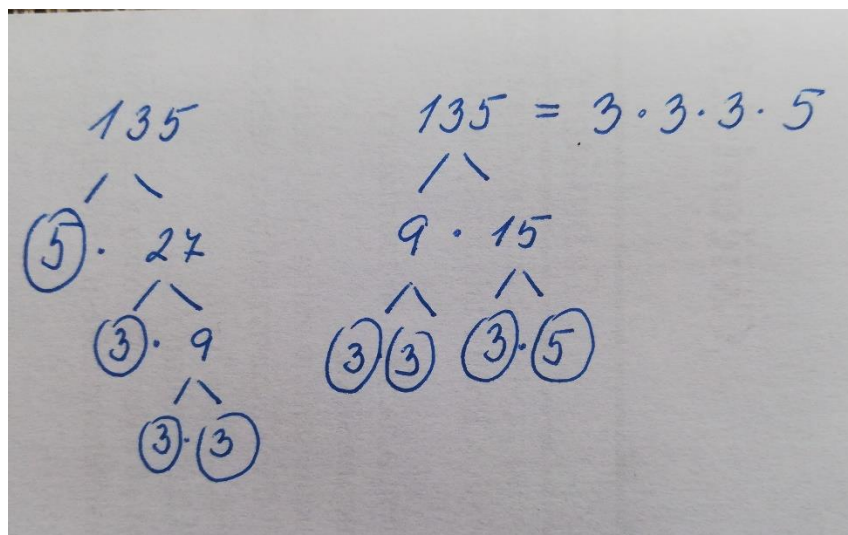 135
5 · 27
3 · 9
3 · 3
135 = 3 · 3 · 3 · 5
9 · 15
3 · 3 3 · 5